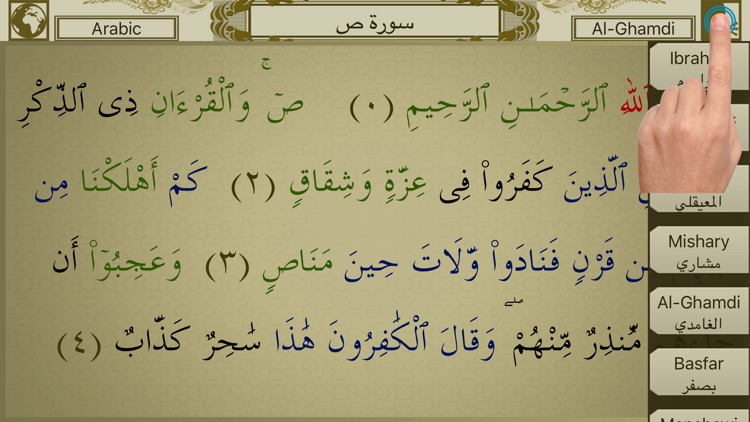 Arabic
سورة ص
Al-Ghamdi
ٱللَّهِ ٱلرَّحْمَـٰنِ ٱلرَّحِيمِ (٠) صٓ ۚ وَٱلْقُرْءَانِ ذِى ٱلذِّكْرِ
ٱلَّذِينَ كَفَرُوا۟ فِى عِزَّةٍ وَشِقَاقٍ (٢) كَمْ أَهْلَكْنَا مِن
قَرْنٍ فَنَادَوا۟ وَّلَاتَ حِينَ مَنَاصٍ (٣) وَعَجِبُوٓا۟ أَن
مُّنذِرٌ مِّنْهُمْ ۖ وَقَالَ ٱلْكَـٰفِرُونَ هَـٰذَا سَـٰحِرٌ كَذَّابٌ (٤)
المعيقلي
Mishary
مشاري
Al-Ghamdi
الغامدي
Basfar
بصفر